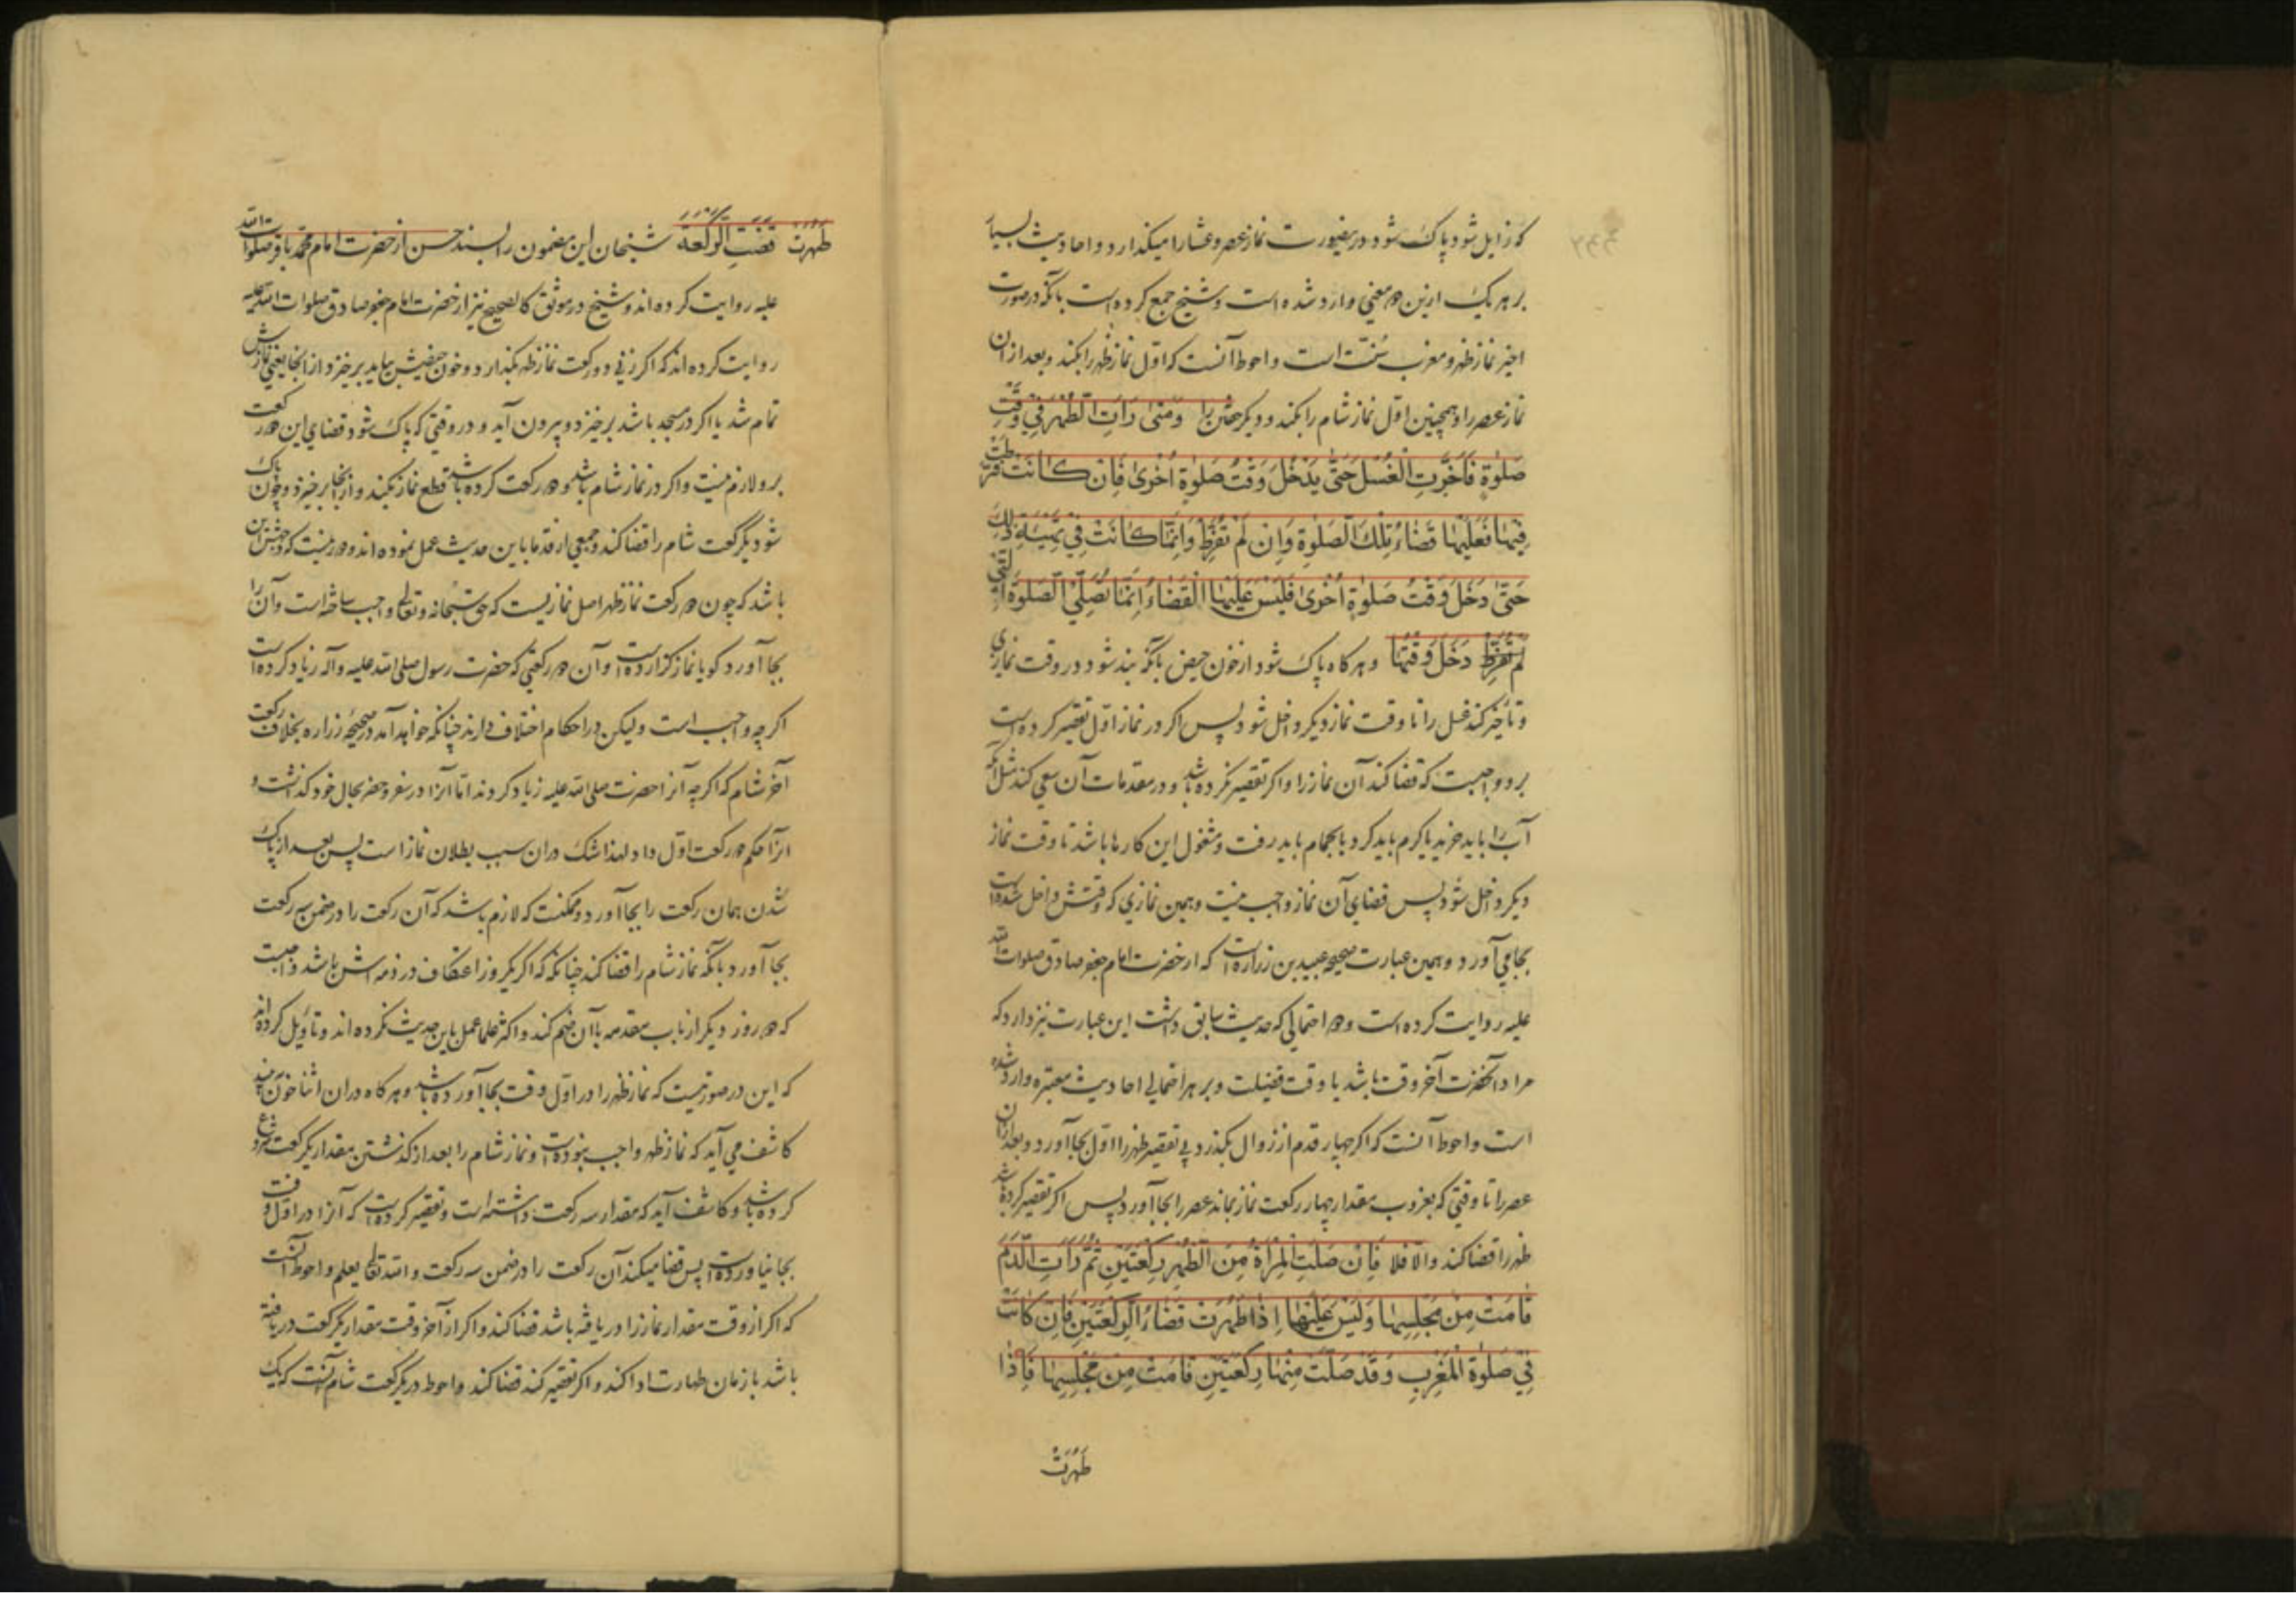 که زایل شود و پاک شود و درینصورت نماز عصر و عشا را میگذارد و احادیث بسیار
بر هر یک ازین دو معنی وارد شده است و شیخ جمع کرده است بآنکه در صورت
اخیر نماز ظهر و مغرب سنّت است و احوط آنست که اوّل نماز ظهر را بکند و بعد از ان
نماز عصر را و همچنین اوّل نماز شام را بکند و دیگر خفتن را وَمَتىٰ رَأَتِ الطُّهْرَ فِي وَقْتِ
صَلوٰةٍ فَأَخَّرَتِ الْغُسْلَ حَتّىٰ يَدْخُلَ وَقْتُ صَلوٰةٍ أُخْرىٰ فَاِنْ كٰانَتْ فَرَّطَتْ
فِيهٰا فَعَلَيْهٰا قَضٰاءُ تِلْكَ الصَّلوٰةِ وَاِنْ لَمْ تُفَرِّطْ وَاِنَّمٰا كٰانَتْ فِي تَهْيِئَةِ ذٰلِكَ
حَتّىٰ دَخَلَ وَقْتُ صَلوٰةٍ أُخْرىٰ فَلَيْسَ عَلَيْهٰا الْقَضٰاءُ اِنَّمٰا تُصَلِّي الصَّلوٰةَ الَّتِي
لَمْ تُفَرِّطْ دَخَلَ وَقْتُهٰا و هر کاه پاک شود از خون حیض بآنکه بند شود در وقت نمازی
و تأخیر کند غسل را تا وقت نماز دیگر داخل شود پس اگر در نماز اوّل تقصیر کرده است
برو واجبست که قضا کند آن نماز را و اگر تقصیر نکرده باشد و در مقدمات آن سعی کند مثل آنکه
آب را باید خرید یا گرم باید کرد یا بحمام باید رفت و مشغول این کارها باشد تا وقت نماز
دیگر داخل شود پس قضای آن نماز واجب نیست و همین نمازی که وقتش داخل شده است
بجا می آورد و همین عبارت صحیحه عبید بن زراره است که از حضرت امام جعفر صادق صلوات الله
علیه روایت کرده است و دو احتمالی که حدیث سابق داشت این عبارت نیز دارد که
مراد آنحضرت آخر وقت باشد یا وقت فضیلت و بر هر احتمالی احادیث معتبره وارد شده
است و احوط آنست که اگر چهار قدم از زوال بگذرد بی تقصیر ظهر را اوّل بجا آورد و بعد از ان
عصر را تا وقتی که بغروب مقدار چهار رکعت نماز بماند عصر را بجا آورد پس اگر تقصیر کرده باشد
ظهر را قضا کند و الّا فلا فَاِنْ صَلَّتِ الْمَرْأَةُ مِنَ الظُّهْرِ رَكْعَتَيْنِ ثُمَّ رَأَتِ الدَّمَ
قٰامَتْ مِنْ مَجْلِسِهٰا وَلَيْسَ عَلَيْهٰا اِذٰا طَهُرَتْ قَضٰاءُ الرَّكْعَتَيْنِ فَاِنْ كٰانَتْ
فِي صَلوٰةِ الْمَغْرِبِ وَقَدْ صَلَّتْ مِنْهٰا رَكْعَتَيْنِ قٰامَتْ مِنْ مَجْلِسِهٰا فَاِذٰا
طَهُرَتْ
طَهُرَتْ قَضَتِ الرَّكْعَةَ شیخان این مضمون را بسند حسن از حضرت امام محمّد باقر صلوات الله
علیه روایت کرده اند و شیخ در موثق کالصحیح نیز از حضرت امام جعفر صادق صلوات الله علیه
روایت کرده اند که اگر زنی دو رکعت نماز ظهر بگذارد و خون حیضش بیاید برخیزد از انجا یعنی نمازش
تمام شد یا اگر در مسجد باشد برخیزد و بیرون آید و در وقتی که پاک شود قضای این دو رکعت
برو لازم نیست و اگر در نماز شام باشد و دو رکعت کرده باشد قطع نماز بکند و از انجا برخیزد و چون پاک
شود یکرکعت شام را قضا کند و جمعی از قدما باین حدیث عمل نموده اند و دور نیست که وجهش این
باشد که چون دو رکعت نماز ظهر اصل نمازیست که حق سبحانه و تعالی واجب ساخته است و آن را
بجا آورد گویا نماز گزارده است و آن دو رکعتی که حضرت رسول صلی الله علیه و آله زیاد کرده است
اگر چه واجب است و لیکن در احکام اختلاف دارند چنانکه خواهد آمد در صحیحه زراره بخلاف رکعت
آخر شام که اگر چه آنرا حضرت صلی الله علیه زیاد کردند امّا آنرا در سفر و حضر بحال خود گذاشت و
آنرا حکم دو رکعت اوّل داد و لهذا شک دران سبب بطلان نماز است پس بعد از پاک
شدن همان رکعت را بجا آورد و ممکنست که لازم باشد که آن رکعت را در ضمن سه رکعت
بجا آورد بآنکه نماز شام را قضا کند چنانکه اگر یکروز اعتکاف در ذمه اش باشد واجبست
که دو روز دیگر از باب مقدمه باآن ضم کند و اکثر علما عمل باین حدیث نکرده اند و تأویل کرده اند
که این در صورتیست که نماز ظهر را در اوّل وقت بجا آورده باشد و هر کاه دران اثنا خون بیند
کاشف می آید که نماز ظهر واجب نبوده است و نماز شام را بعد از گذشتن مقدار یکرکعت شروع
کرده باشد و کاشف آید که مقدار سه رکعت داشته است و تقصیر کرده است که آنرا در اوّل وقت
بجا نیاورده است پس قضا میکند آن رکعت را در ضمن سه رکعت و الله تعالی یعلم و احوط آنست
که اگر از وقت مقدار نماز را دریافته باشد قضا کند و اگر از آخر وقت مقدار یکرکعت دریافته
باشد با زمان طهارت ادا کند و اگر تقصیر کند قضا کند و احوط در یکرکعت شام آنست که یک